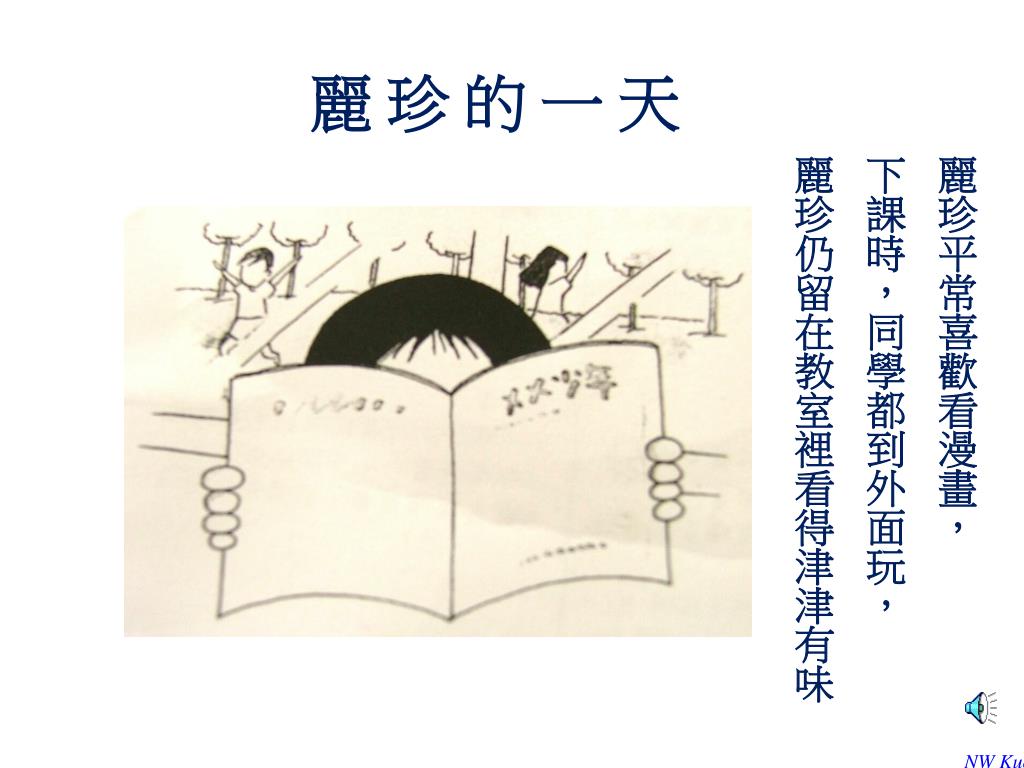 麗珍的一天
麗珍平常喜歡看漫畫，
下課時，同學都到外面玩，
麗珍仍留在教室裡看得津津有味
少年
NW